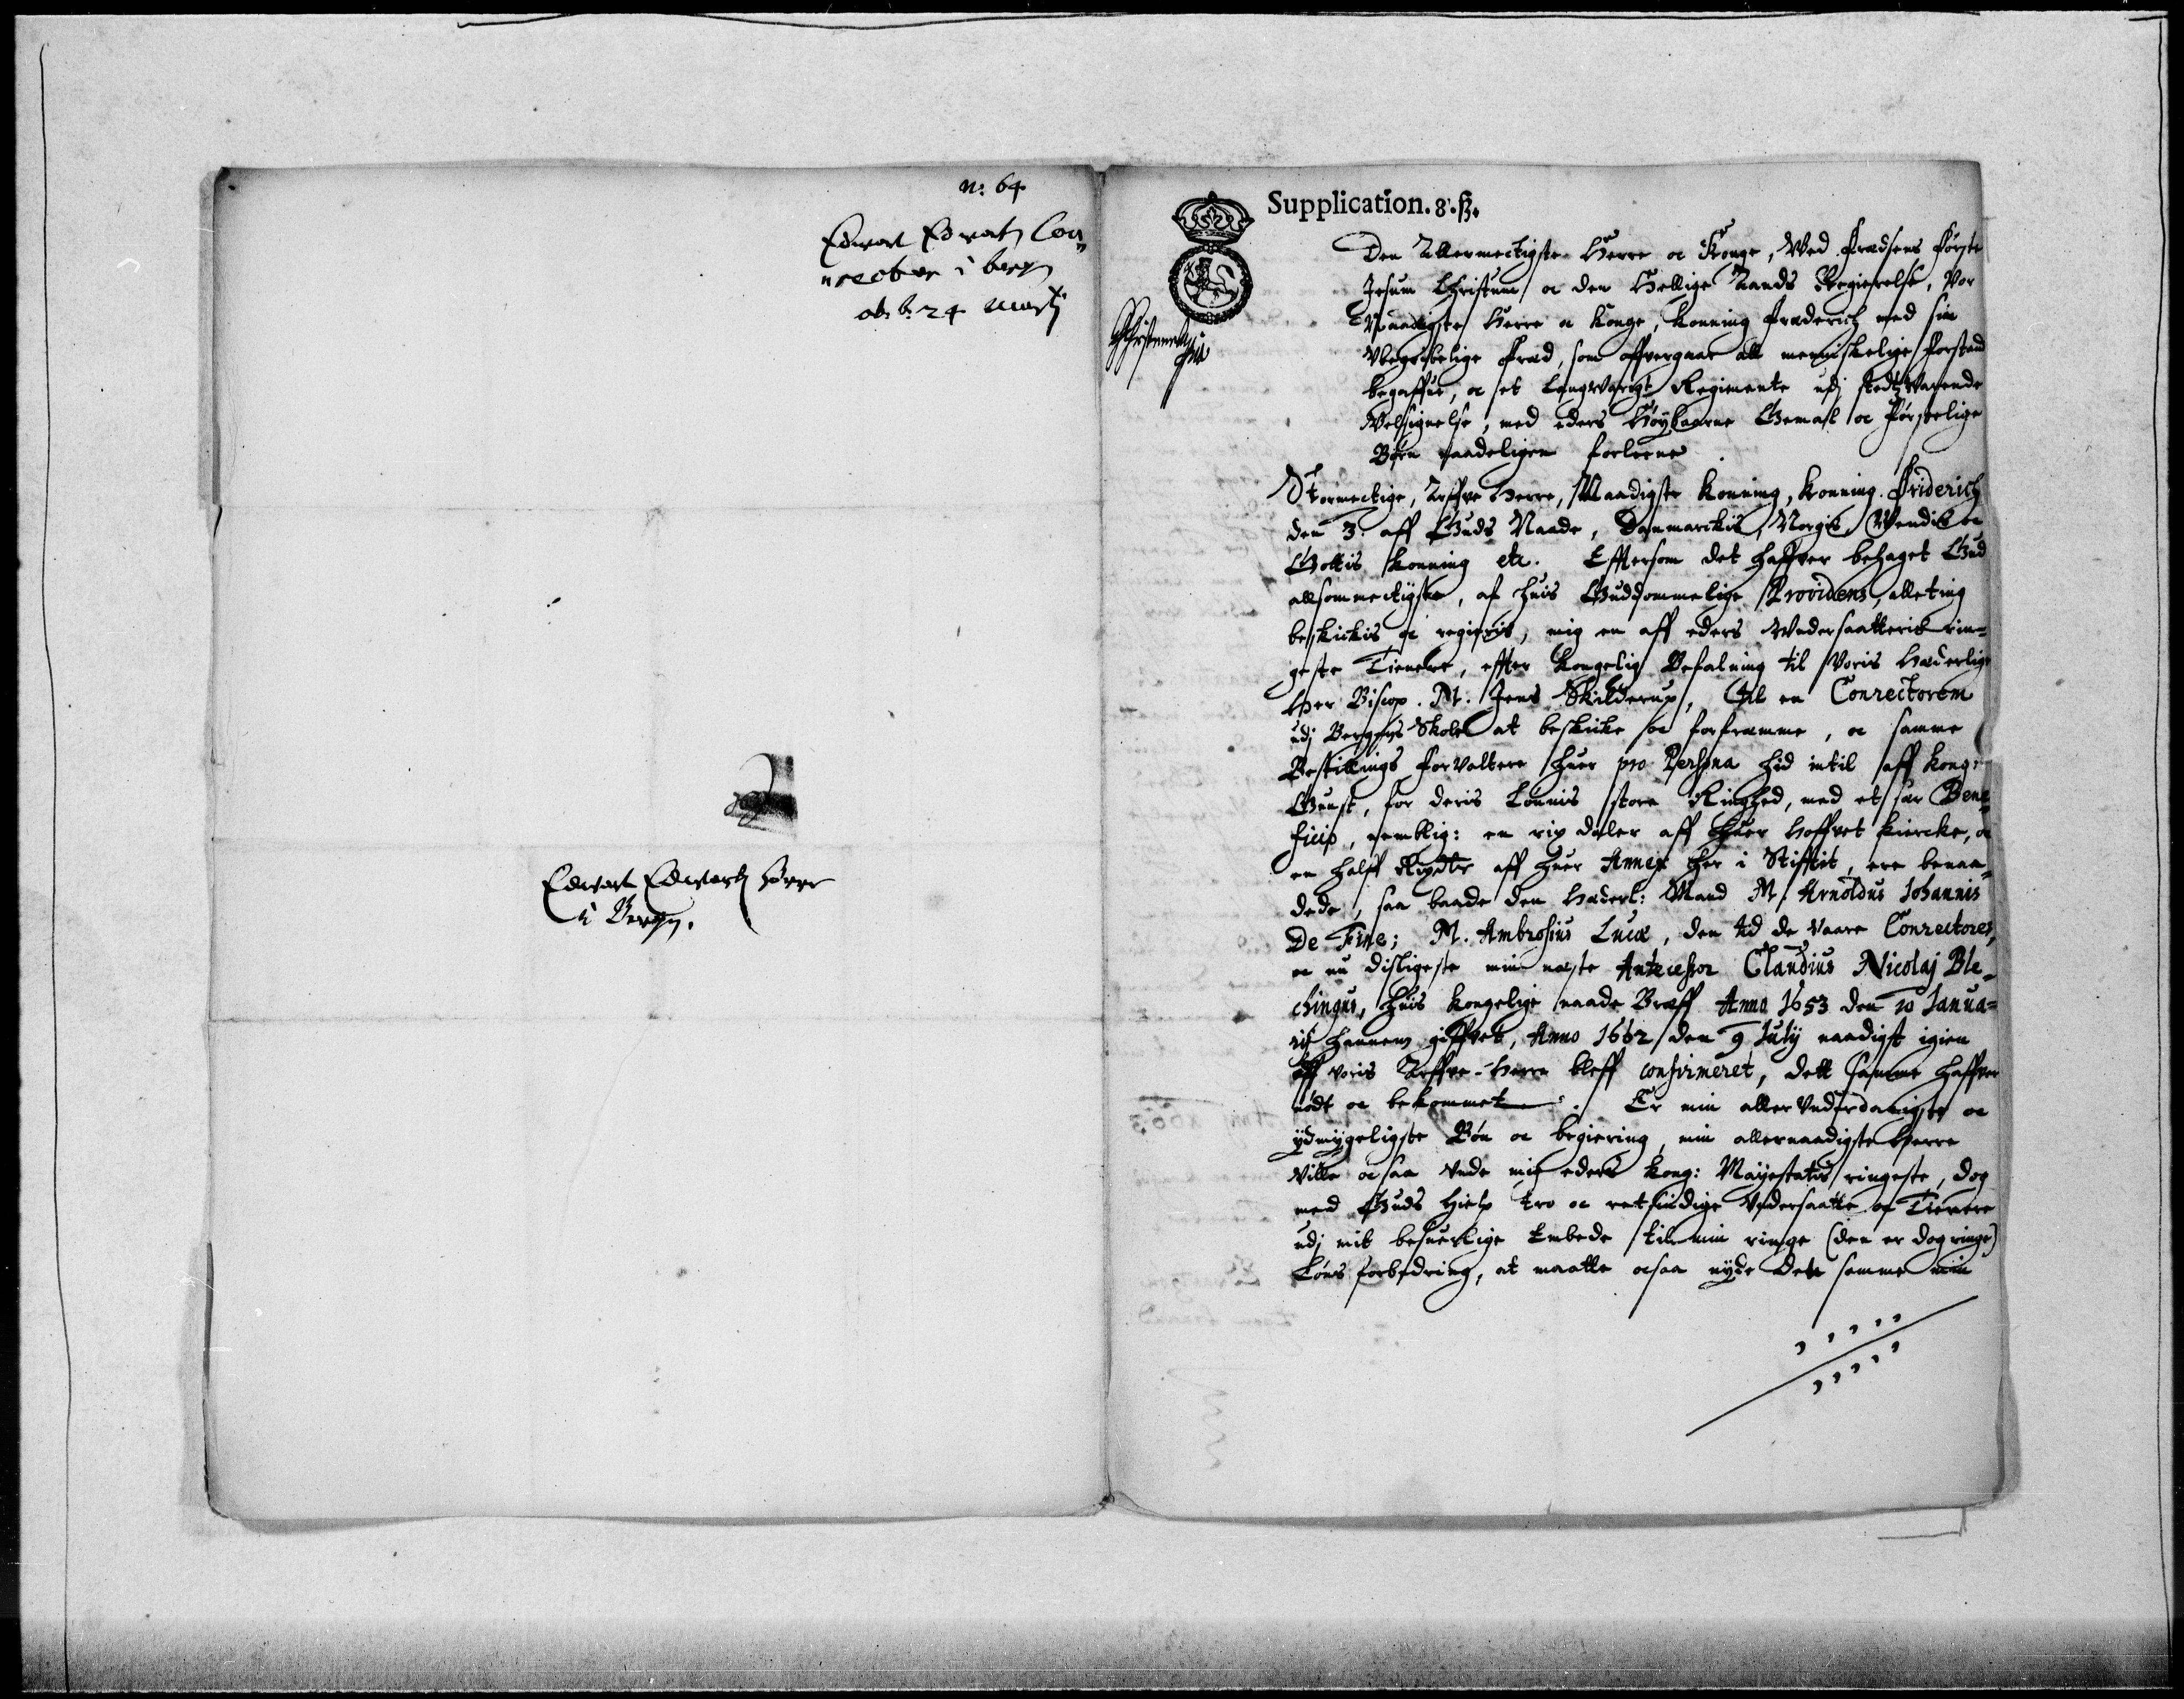 n: 64
Edvart Edvartz Con„
rector i bergen
ab. b. 24 Martj
Edvart Edvartz
i Bergen.
Supplication. 8. ß.
Den Allermectigste Herre oc Konge, Ved Fredsens Første
Jesum Christum oc den Hellige Aands Regierelse, Vor
Naadigste Herre oc Konge, Konning Frederich med sin
Vbegribelige Fred, som offvergaar all menniskelige Forstand
begaffue, oc et langvarigt Regimente udj stedtzvarende
Velsignelse, med eders Høybaarne Gemahl oc Førstelige
Børn naadeligen forleene.
Stormectige, Arffve Herre, Naadigste Konning, Konning Friderich
den 3. aff Guds Naade, Danmarckis, Norgis, Wendis oc
Gottis Konning etc. Efftersom det haffver behaget Gud
allsommectigste, af huis Guddommelige Providens, alleting
beskickis oc regieris, mig en aff eders Undersaatteris rin=
geste Tienere, effter Kongelig Befalning til Voris Hæderlige
Her Biscop. M. Jens Skielderup, til en Conrectorem
udj Bergens Skole at beskicke oc forfremme, oc samme
Bestillings Forvaltere huer pro Persona hid intil aff Kong:
Gunst, for deris Lønnis store Ringhed, med et sær Bene„
ficio, nemblig: en rix daler aff huer Hoffvet Kiercke, oc
en halff Rixdlr aff huer Annex her i Stifftit, ere benaa„
dede, saa baade den Hæderl: Mand M. Arnoldus Johannis
De Fine; M. Ambrosius Lucæ, den tid de vaare Conrectores,
oc nu disligeste min neste Antecessor Claudius Nicolaj Ble„
chingus, huis Kongelige naade Breff Anno 1653 den 10 Janua=
rij hannem giffvet, Anno 1662 den 9 Julij naadigst igien
aff voris Arffve-Herre bleff confirmeret, dett samme haffver
nødt oc bekommet. Er min aller Underdanigste oc
ydmygeligste Bøn oc begiering, min allernaadigste Herre
Ville ocsaa Unde mig eders Kong: Mayestatis ringeste, dog
med Guds Hielp tro oc retsindige Undersaatte oc Tienere
udj mit besuerlige Embede til min ringe (den er dog ringe)
Løns forbedring, at maatte ocsaa nyde dett samme min